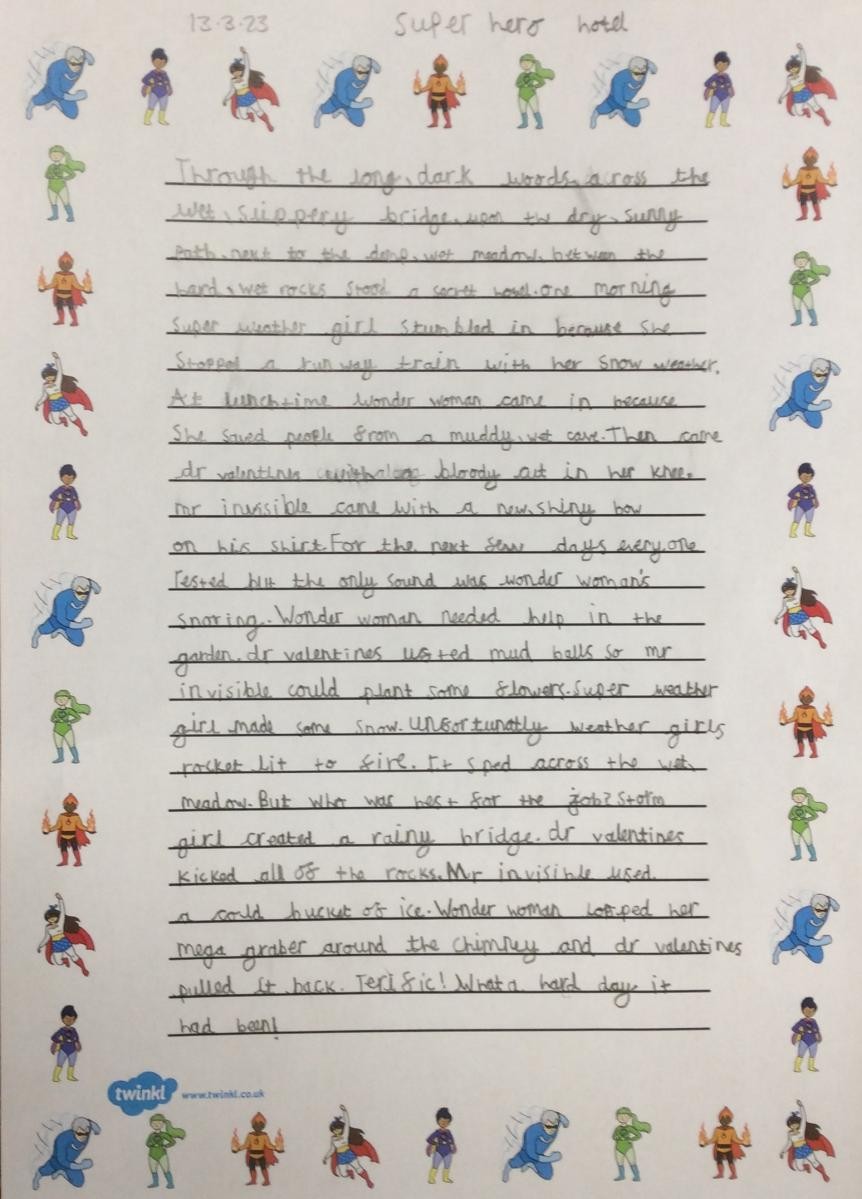 13.3.23 Super hero hotel
Through the long, dark woods, across the
wet, slippery bridge, upon the dry, sunny
path, next to the damp, wet meadow, between the
hard, wet rocks stood a secret hotel. One morning
Super weather girl stumbled in because she
stopped a run way train with her snow weather.
At lunchtime wonder woman came in because
She saved people from a muddy, wet cave. Then came
dr valentines with a bloody cut in her knee.
mr invisible came with a new, shiny bow
on his shirt. For the next few days every one
rested but the only sound was wonder woman's
snoring. Wonder woman needed help in the
garden. dr valentines usted mud balls so mr
invisible could plant some flowers. Super weather
girl made some snow. Unfortunatly weather girls
rocket lit to fire. It sped across the wet
meadow. But who was best for the job? Storm
girl created a rainy bridge. dr valentines
kicked all of the rocks. Mr invisible used
a could bucket of ice. Wonder woman her
mega graber around the chimney and dr valentines
pulled it back. Terific! What a hard day it
had been!
twinkl www.twinkl.co.uk